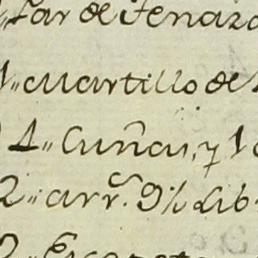 Par de Tenaza
1,, cuartillo de
1,, Cuña, y 1
2,, arrˢ. 9½ Lib